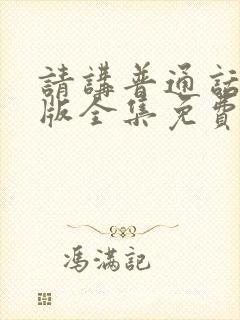 請講普通話
版全集免費
馮滿記